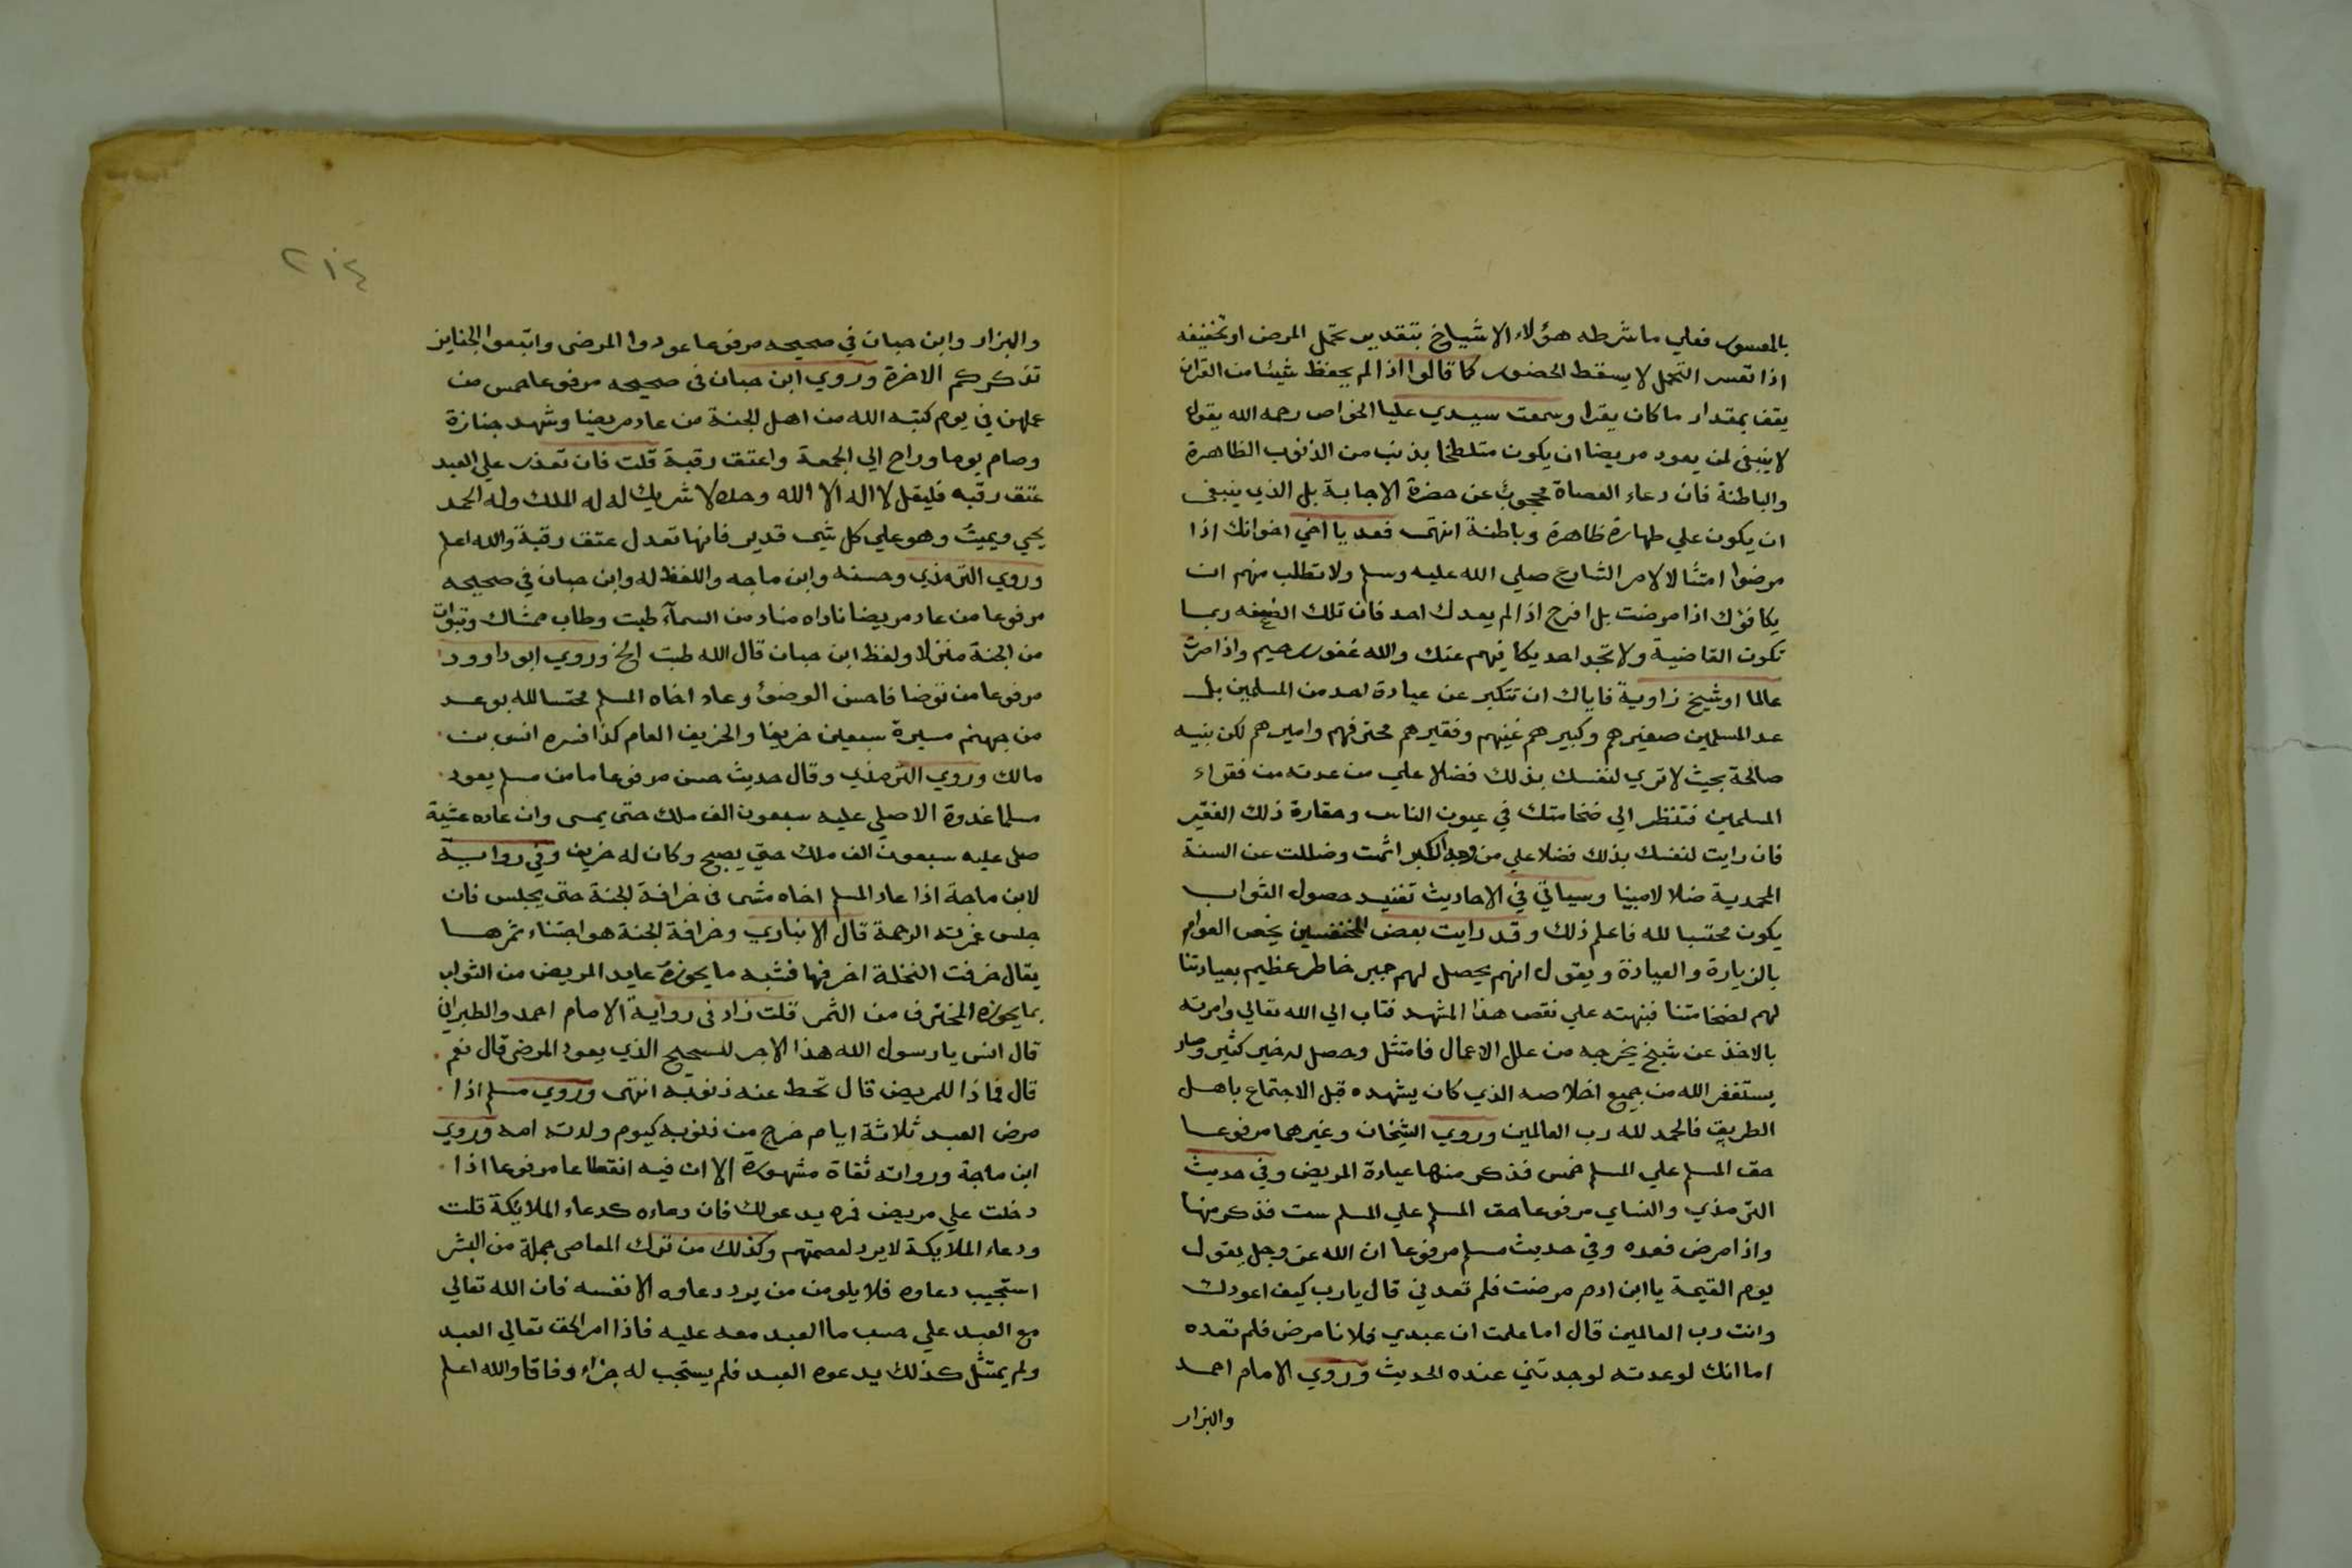 بالمعسور فعلي ما شرطه هؤلاء الاشياخ بتقدير تحمل المرض او تخفيفه
اذا تعسر التحمل لا يسقط الحضور كما قالوا اذا لم يحفظ شيئا من القران
يقف بمقدار ما كان يقرا وسمعت سيدي عليا الخواص رحمه الله يقول
لا ينبغي لمن يعود مريضا ان يكون متلطخا بذنب من الذنوب الظاهرة
والباطنة فان دعاء العصاة محجوب عن حضرة الاجابة بل الذي ينبغي
ان يكون علي طهارة ظاهرة وباطنة انتهى فعد يا اخي اخوانك اذا
مرضوا امتثالا لامر الشارع صلي الله عليه وسلم ولا تطلب منهم ان
يكافؤك اذا مرضت بل افرح اذا لم يعدك احد فان تلك الضجعه ربما
تكون القاضية ولا تجد احد يكافيهم عنك والله غفور رحيم واذا صرت
عالما او شيخ زاوية فاياك ان تتكبر عن عيادة احد من المسلمين بل
عد المسلمين صغيرهم وكبيرهم غنيهم وفقيرهم محترفهم واميرهم لكن بنيه
صالحة بحيث لا تري لنفسك بذلك فضلا علي من عدته من فقراء
المسلمين فتنظر الي ضخامتك في عيون الناس وحقارة ذلك الفقير
فان رايت لنفسك بذلك فضلا علي من وجه الكبر اثمت وضللت عن السنة
المحمدية ضلالا مبينا وسياتي في الاحاديث تقييد حصول الثواب
يكون محتسبا لله فاعلم ذلك وقد رايت بعض يخص العوام
بالزيارة والعيادة ويقول انهم يحصل لهم جبر خاطر عظيم بعيادتنا
لهم لضخامتنا فنبهته علي نقص هذا المشهد فتاب الي الله تعالي وامرته
بالاخذ عن شيخ يخرجه من علل الاعمال فامتثل وحصل له خير كثير وصار
يستغفر الله من جميع اخلاصه الذي كان يشهده قبل الاجتماع باهل
الطريق فالحمد لله رب العالمين وروي الشيخان وغيرهما مرفوعا
حق المسلم علي المسلم خمس فذكر منها عيادة المريض وفي حديث
الترمذي والنساي مرفوعا حق المسلم علي المسلم ست فذكر منها
واذا مرض فعده وفي حديث مسلم مرفوعا ان الله عز وجل يقول
يوم القيمة يا ابن ادم مرضت فلم تعدني قال يارب كيف اعودك
وانت رب العالمين قال اما علمت ان عبدي فلانا مرض فلم تعده
اما انك لو عدته لوجدتني عنده الحديث وروي الامام احمد
والبزار
٢١٤
والبزار وابن حبان في صحيحه مرفوعا عودوا المرضى واتبعوا الجنايز
تذكركم الاخرة وروي ابن حبان في صحيحه مرفوعا خمس من
عملهن في يوم كتبه الله من اهل الجنة من عاد مريضا وشهد جنازة
وصام يوما وراح الي الجمعة واعتق رقبة قلت فان تعذر علي العبد
عتق رقبه فليقل لا اله الا الله وحده لا شريك له له الملك وله الحمد
يحي ويميت وهو علي كل شي قدير فانها تعدل عتق رقبة والله اعلم
وروي الترمذي وحسنه وابن ماجه واللفظ له وابن حبان في صحيحه
مرفوعا من عاد مريضا ناداه مناد من السمآء طبت وطاب ممشاك وتبوات
من الجنة منزلا ولفظ ابن حبان قال الله طبت الخ وروي ابو داوود
مرفوعا من توضا فاحسن الوضوء وعاد اخاه المسلم محتسبا لله بوعد
من جهنم مسيرة سبعين خريفا والخريف العام كذا فسره انس بن
مالك وروي الترمذي وقال حديث حسن مرفوعا ما من مسلم يعود
مسلما غدوة الا صلي عليه سبعون الف ملك حتى يمسى وان عاده عشية
صلى عليه سبعون الف ملك حتي يصبح وكان له خريف وفي رواية
لابن ماجة اذا عاد المسلم اخاه مشى في خرافة الجنة حتى يجلس فان
جلس غمرته الرحمة قال الانباري وخرافة الجنة هو اجتناء ثمرها
يقال خرفت النخلة اخرفها فشبه ما يحوزه عايد المريض من الثواب
بما يحوزه المخترف من الثمر قلت زاد في رواية الامام احمد والطبراني
قال انس يا رسول الله هذا الاجر للصحيح الذي يعود المرضى قال نعم
قال فماذا للمريض قال تحط عنه ذنوبه انتهى وروي مسلم اذا
مرض العبد ثلاثة ايام خرج من ذنوبه كيوم ولدته امه وروي
ابن ماجة ورواته ثقاة مشهورة الا ان فيه انقطاعا مرفوعا اذا
دخلت علي مريض فمره يدعو لك فان دعاءه كدعاء الملايكة قلت
ودعاء الملايكة لا يرد لعصمتهم وكذلك من ترك المعاصى جملة من البشر
استجيب دعاوه فلا يلومن من يرد دعاوه الا نفسه فان الله تعالي
مع العبد علي حسب ما العبد معه عليه فاذا امر الحق تعالي العبد
ولم يمتثل كذلك يدعوه العبد فلم يستجب له جزاء وفاقا والله اعلم